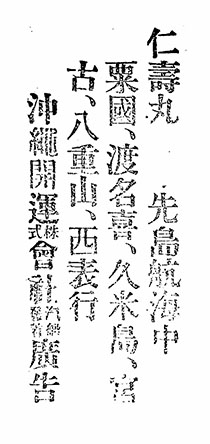 仁壽丸　先島航海中
粟國、渡名喜、久米島、宮
古、八重山、西表行
沖繩開運株式會社廣告